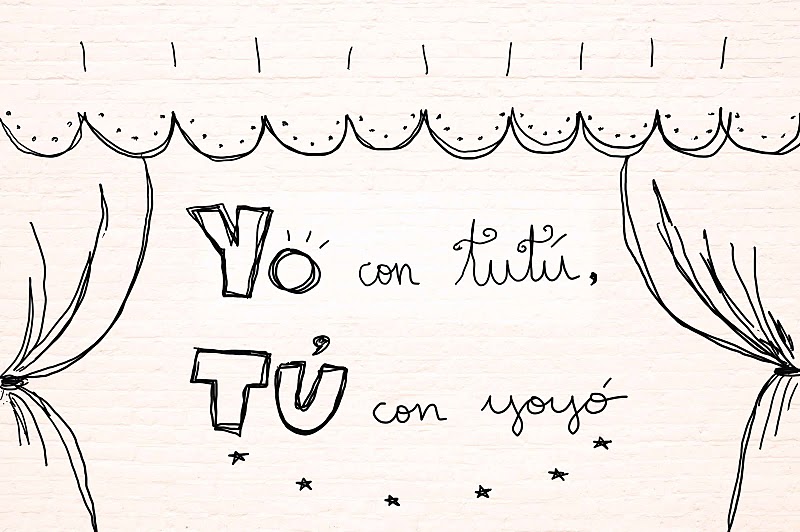 Yo con tutú,
TÚ con yoyó